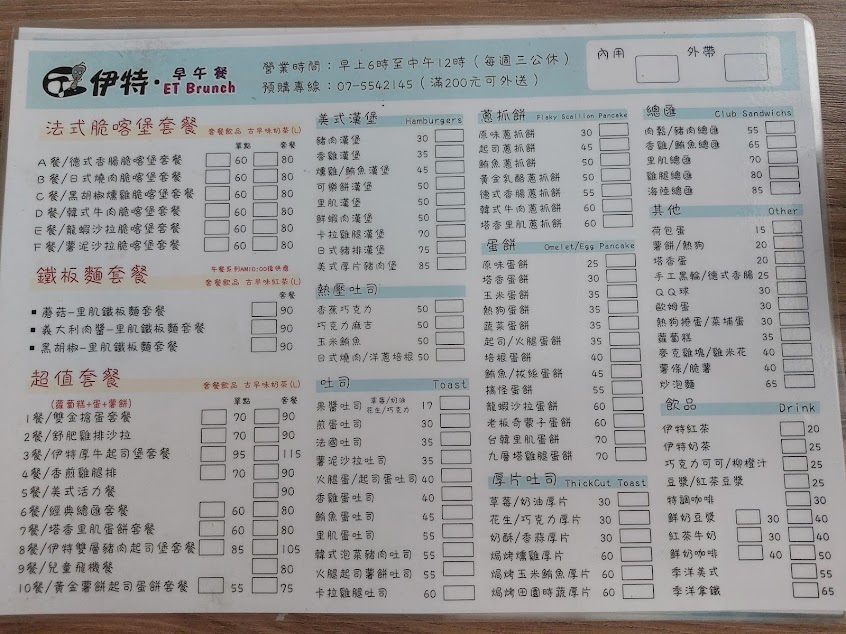 伊特·早午餐
ET Brunch
營業時間：早上6時至中午12時（每週三公休）
預購專線：07-5542145（滿200元可外送）
內用
外帶
法式脆喀堡套餐
套餐飲品 古早味奶茶(L)
單點 套餐
A餐/德式香腸脆喀堡套餐 60 80
B餐/日式燒肉脆喀堡套餐 60 80
C餐/黑胡椒燻雞脆喀堡套餐 60 80
D餐/韓式牛肉脆喀堡套餐 60 80
E餐/龍蝦沙拉脆喀堡套餐 60 80
F餐/薯泥沙拉脆喀堡套餐 60 80
鐵板麵套餐
午餐系列AM10:00後供應
套餐飲品 古早味紅茶(L)
套餐
▪蘑菇-里肌鐵板麵套餐 90
▪義大利肉醬-里肌鐵板麵套餐 90
▪黑胡椒-里肌鐵板麵套餐 90
超值套餐
套餐飲品 古早味奶茶(L)
(蘿蔔糕+蛋+薯餅)
單點 套餐
1餐/雙金搶蛋套餐 70 90
2餐/舒肥雞排沙拉 70 90
3餐/伊特厚牛起司堡套餐 95 115
4餐/香煎雞腿排 70 90
5餐/美式活力餐 90
6餐/經典總匯套餐 60 80
7餐/塔香里肌蛋餅套餐 60 80
8餐/伊特雙層豬肉起司堡套餐 85 105
9餐/兒童飛機餐 80
10餐/黃金薯餅起司蛋餅套餐 55 75
美式漢堡 Hamburgers
豬肉漢堡 30
香雞漢堡 35
燻雞/鮪魚漢堡 45
可樂餅漢堡 50
里肌漢堡 50
鮮蝦肉漢堡 50
卡拉雞腿漢堡 70
日式豬排漢堡 75
美式厚片豬肉堡 85
熱壓吐司
香蕉巧克力 50
巧克力麻吉 50
玉米鮪魚 50
日式燒肉/洋蔥培根 50
吐司 Toast
果醬吐司 草莓/奶油 花生/巧克力 17
煎蛋吐司 30
法國吐司 35
薯泥沙拉吐司 35
火腿蛋/起司蛋吐司 40
香雞蛋吐司 40
鮪魚蛋吐司 45
里肌蛋吐司 55
韓式泡菜豬肉吐司 55
火腿起司薯餅吐司 55
卡拉雞腿吐司 60
蔥抓餅 Flaky Scallion Pancake
原味蔥抓餅 30
起司蔥抓餅 45
鮪魚蔥抓餅 50
黃金乳酪蔥抓餅 50
德式香腸蔥抓餅 55
韓式牛肉蔥抓餅 60
塔香里肌蔥抓餅 60
蛋餅 Omelet/Egg Pancake
原味蛋餅 25
塔香蛋餅 30
玉米蛋餅 35
熱狗蛋餅 35
蔬菜蛋餅 35
起司/火腿蛋餅 35
培根蛋餅 40
鮪魚/肉絲蛋餅 45
搞怪蛋餅 50
龍蝦沙拉蛋餅 60
老板奇蒙子蛋餅 60
台韓里肌蛋餅 60
九層塔雞腿蛋餅 70
厚片吐司 ThickCut Toast
草莓/奶油厚片 30
花生/巧克力厚片 30
奶酥/香蒜厚片 30
焗烤燻雞厚片 60
焗烤玉米鮪魚厚片 60
焗烤田園時蔬厚片 60
總匯 Club Sandwichs
肉鬆/豬肉總匯 55
香雞/鮪魚總匯 65
里肌總匯 70
雞腿總匯 80
海陸總匯 85
其他 Other
荷包蛋 15
薯餅/熱狗 20
塔香蛋 20
手工黑輪/德式香腸 25
QQ球 30
歐姆蛋 30
熱狗捲蛋/菜埔蛋 30
蘿蔔糕 35
麥克雞塊/雞米花 40
薯條/脆薯 40
炒泡麵 65
飲品 Drink
伊特紅茶 20
伊特奶茶 25
巧克力可可/柳橙汁 25
豆漿/紅茶豆漿 25
特調咖啡 30
鮮奶豆漿 30 40
紅茶牛奶 30 40
鮮奶咖啡 40 50
季洋美式 55
季洋拿鐵 65